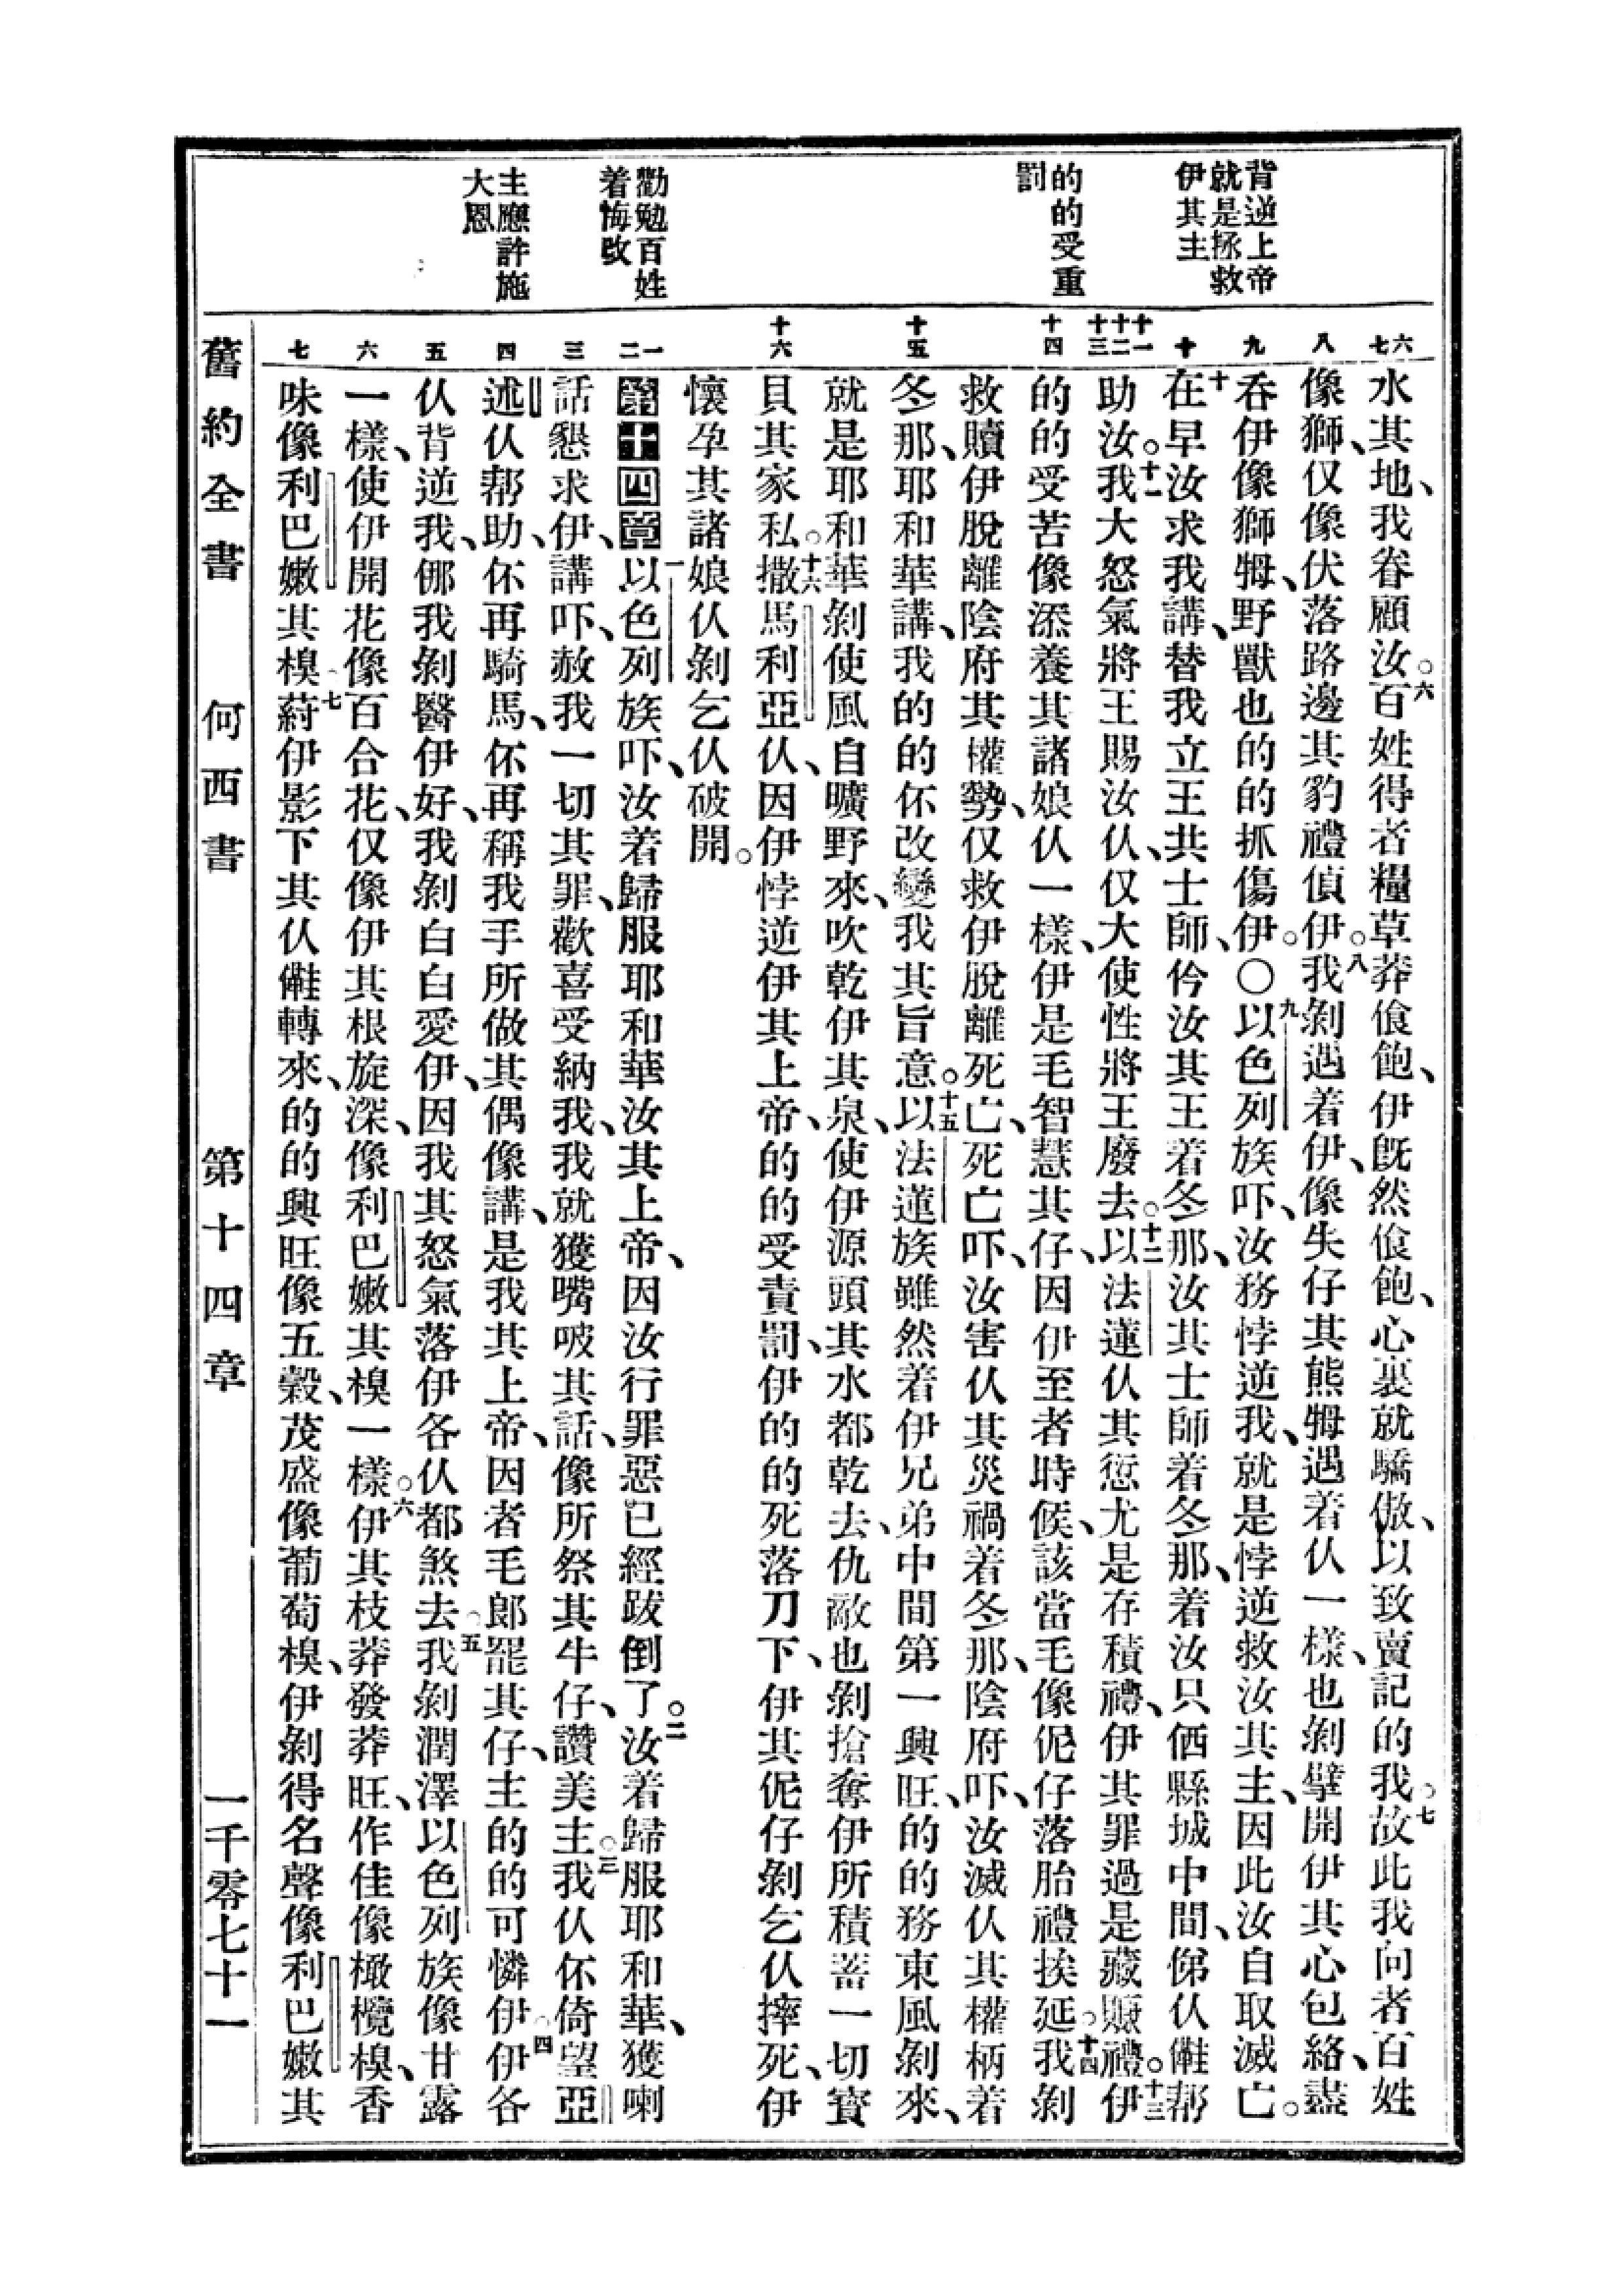 背逆上帝
就是拯救
伊其主
的的受重
罰
勸勉百姓
着悔改
主應許施
大恩
六 七 八 九 十 十一 十二 十三 十四 十五 十六 一 二 三 四 五 六 七
水其地、我眷顧汝。六百姓得者糧草莽飽、伊既然飽、心裏就驕傲、以致賣記的我。七故此我向者百姓
像獅、仅像伏落路邊其豹禮偵伊。八我剝遇着伊、像失仔其熊㛂遇着仈一樣、也剝擘開伊其心包絡、盡
吞伊像獅㛂、野獸也的的抓傷伊。〇九以色列族吓、汝務悖逆我、就是悖逆救汝其主、因此汝自取滅亡。
十在早汝求我講、替我立王共士師、仱汝其王着冬那、汝其士師着冬那、着汝只縣城中間、仈帮
助汝。十一我大怒氣將王賜汝仈、仅大使性將王廢去。十二以法蓮仈其愆尤是存積禮、伊其罪過是藏禮。十三伊
的的受苦像添養其諸娘仈一樣、伊是毛智慧其仔、因伊至者時候、該當毛像伲仔落胎禮挨延。十四我剝
救贖伊脫離陰府其權勢、仅救伊脫離死亡、死亡吓、汝害仈其災禍着冬那、陰府吓、汝滅仈其權柄着
冬那、耶和華講、我的的伓改變我其旨意。十五以法蓮族雖然着伊兄弟中間第一興旺、的的務東風剝來、
就是耶和華剝使風自曠野來、吹乾伊其泉、使伊源頭其水都乾去、仇敵也剝搶奪伊所積蓄一切寳
貝其家私。十六撒馬利亞仈、因伊悖逆伊其上帝、的的受責罰、伊的的死落刀下、伊其伲仔剝乞仈摔死、伊
懷孕其諸娘仈剝乞仈破開。
第十四章 一以色列族吓、汝着歸服耶和華汝其上帝、因汝行罪惡已經跋倒了。二汝着歸服耶和華、獲喇
話懇求伊、講吓、赦我一切其罪、歡喜受納我、我就獲嘴㕹其話、像所祭其牛仔、讚美主。三我仈伓倚望亞
述仈帮助、伓再騎馬、伓再稱我手所做其偶像講、是我其上帝、因者毛郎罷其仔、主的的可憐伊。四伊各
仈背逆我、我剝醫伊好、我剝白白愛伊、因我其怒氣落伊各仈都煞去。五我剝潤澤以色列族像甘露
一樣、使伊開花像百合花、仅像伊其根旋深、像利巴嫩其樹一樣。六伊其枝莽發莽旺、作佳像橄欖樹、香
味像利巴嫩其樹。七蹛伊影下其仈轉來、的的興旺像五穀、茂盛像葡萄樹、伊剝得名聲像利巴嫩其
舊約全書 何西書 第十四章 一千零七十一